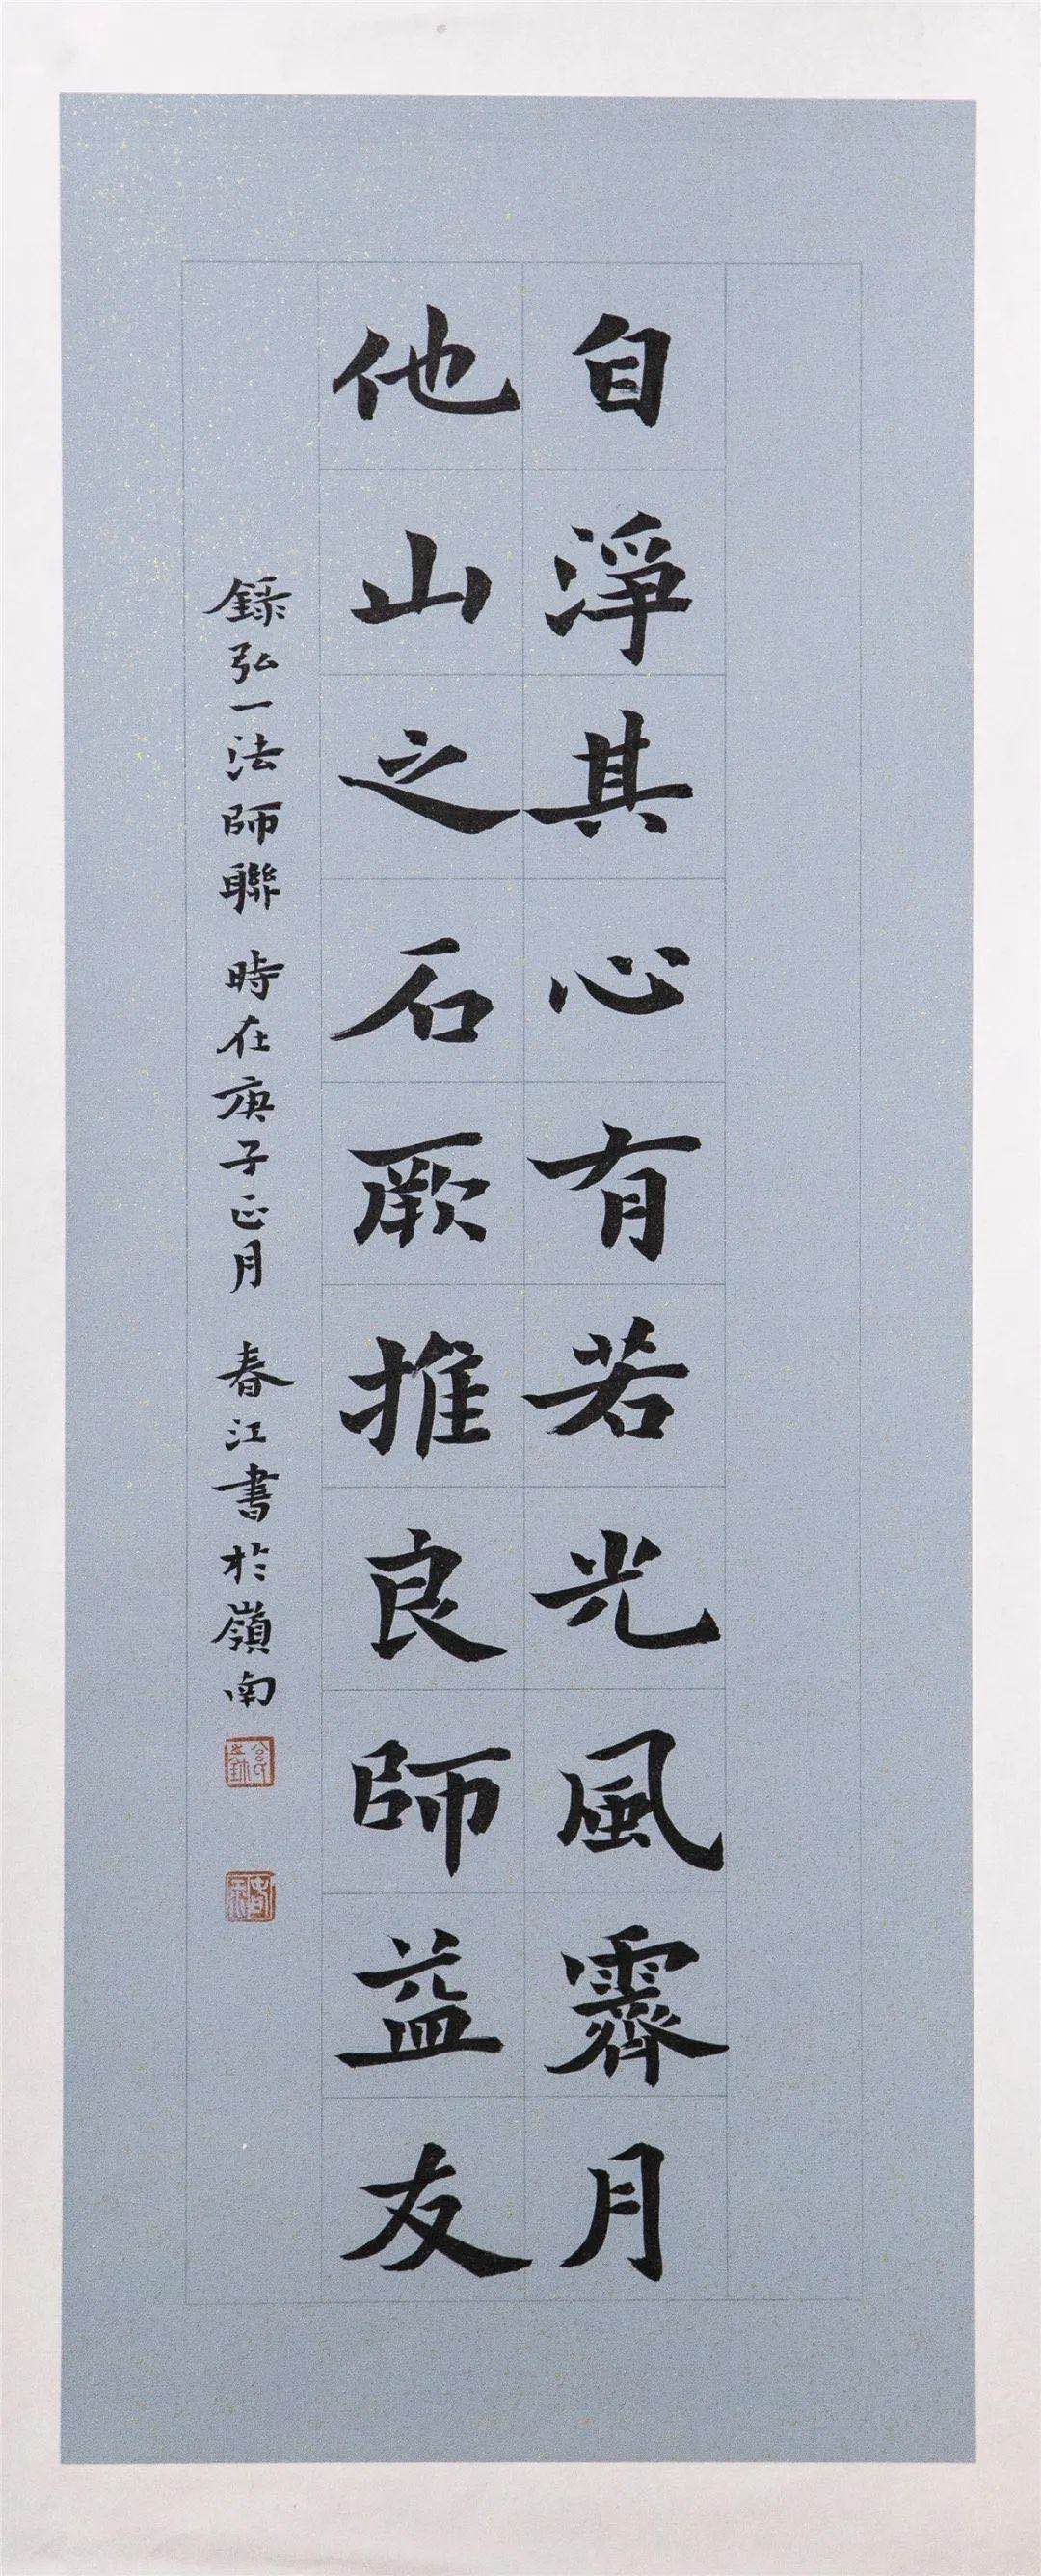 自淨其心有若光風霽月
他山之石厥推良師益友
錄弘一法師聯 時在庚子正月 春江書於嶺南